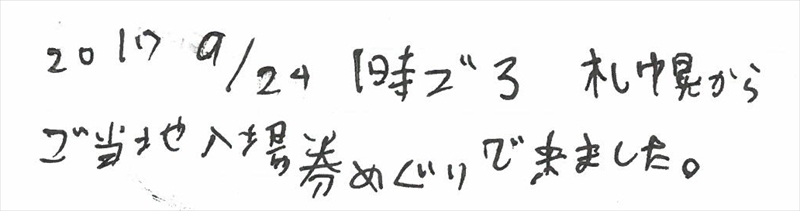 2017 9/24 1時ごろ 札幌から
ご当地入場券めぐりで来ました。